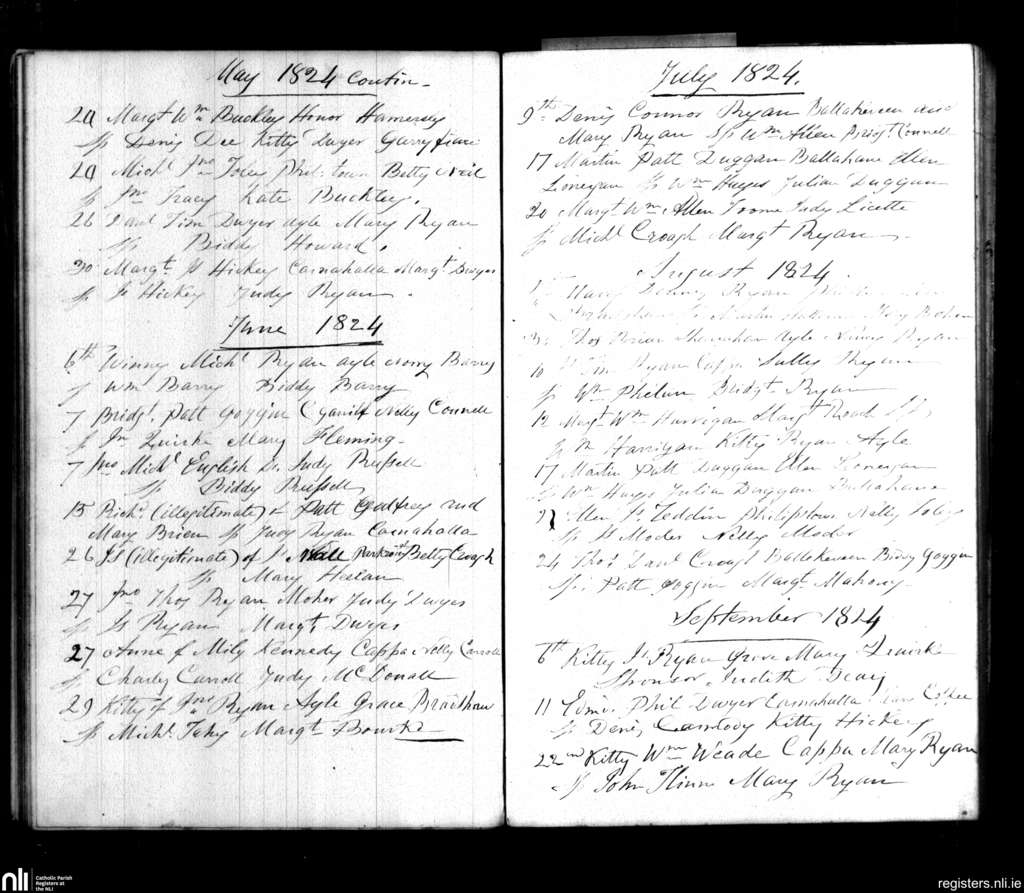 May 1824 Contin-
20 Margt Wm Buckley Honor Hamersly
Sp Denis Dee Kitty Dwyer Garry
20 Michl Jno Foley Phil: town Betty Neil
Sp Jno Tracy Kate Buckley.
26 Danl Tim Dwyer ayle Mary Ryan
Sp Biddy Howard.
30 Margt Js Hickey Carnahalla Margt Dwyer
Sp Js Hickey Judy Ryan.
June 1824
6th Winny Michl Ryan ayle Norry Barry
Sp Wm Barry Biddy Barry
7 Bridgt Patt Goggin Nelly Connell
Sp Jn Quirke Mary Fleming-
7 Jno Michl English Judy Russell
Sp Biddy Russell
15 Richd (illegitimate) of Patt Godfrey and
Mary Brien Sp Judy Ryan Carnahalla
26 Js (illegitimate) of Betty Creagh
Sp Mary
27 Jno Thos Ryan Moher Judy Dwyer
Sp Js Ryan Margt Dwyer
27 Anne of Mily Kennedy Cappa Nelly Carroll
Sp Charles Carroll Judy McDonall
29 Kitty of Jno Ryan Ayle Grace Bradshaw
Sp Michl Fahy Margt Bourke
July 1824.
9th Denis Connor Ryan Ballakeveen and
Mary Ryan Sp Wm Allen Bridgt Connell
17 Martin Patt Duggan Ballahane Ellen
Lonergan Sp Wm Hayes Julian Duggan
20 Margt Wm Allen Toome Judy Licette
Sp Michl Creagh Margt Ryan.
August 1824.
Mary Ryan
Thos Brien ayle Ryan
10 Tim Ryan Cappa
Sp Wm Phelan Bridgt Ryan
12 Margt Wm Hurrigan Road
Sp Harrigan Kitty Ryan Ayle
17 Martin Patt Duggan Ellen Lonergan
Sp Wm Hayes Julian Duggan Ballahane
Ellen Js Leddin Philipstown Nelly Foley
Sp Js Moder Nelly Moder
24 Thos Danl Creagh Ballekeveen Biddy Goggin
Sp: Patt Goggin Margt Mahony-
September 1824
6th Kitty Js Ryan Grove Mary Quirke
Sponsor Judith Deay
11 Edmd Phil Dwyer Carnahalla
Sp Denis Carmody Kitty Hickey
22nd Kitty Wm Weade Cappa Mary Ryan
Sp John Flinn Mary Ryan
nli
Catholic Parish
Registers at
the NLI
registers.nli.ie